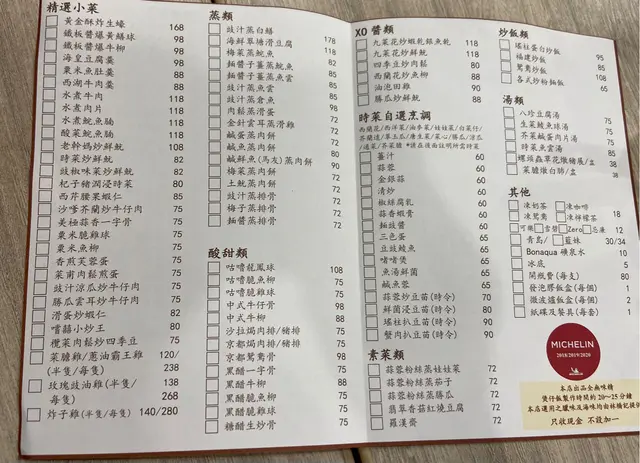 精選小菜
黃金酥炸生蠔 168
鐵板醬爆黃鱔球 98
鐵板醬爆牛柳 98
海皇豆腐羹 98
粟米魚肚羹 88
西湖牛肉羹 88
水煮牛肉 118
水煮肉片 118
水煮鯇魚腩 118
酸菜鯇魚腩 118
老幹媽炒鮮魷 108
時菜炒鮮魷 82
豉椒味菜炒鮮魷 82
杞子豬潤浸時菜 80
西芹腰果蝦仁 85
沙嗲芥蘭炒牛仔肉 75
美極蒜香一字骨 75
粟米脆雞球 75
粟米魚柳 75
香煎芙蓉蛋 75
菜甫肉鬆煎蛋 75
豉汁涼瓜炒牛仔肉 75
勝瓜雲耳炒牛仔肉 75
滑蛋炒蝦仁 82
嚐囍小炒王 80
欖菜肉鬆炒四季豆 75
菜膽雞/蔥油霸王雞 120/
(半隻/每隻) 238
玫瑰豉油雞(半隻/ 138
每隻) 268
炸子雞(半隻/每隻) 140/280
蒸類
豉汁蒸白鱔
海鮮翠塘滑豆腐 178
梅菜蒸鯇魚 118
麵醬子薑蒸鯇魚 85
麵醬子薑蒸魚雲 85
豉汁蒸魚雲 85
豉汁蒸倉魚 85
肉鬆蒸滑蛋 98
金針雲耳蒸滑雞 82
鹹蛋蒸肉餅 90
鹹魚蒸肉餅 90
鹹鮮魚(馬友)蒸肉餅 90
梅菜蒸肉餅 90
土魷蒸肉餅 90
豉汁蒸排骨 72
梅子蒸排骨 72
麵醬蒸排骨 72
酸甜類
咕嚕龍鳳球 108
咕嚕脆魚柳 75
咕嚕脆雞球 75
中式牛仔骨 98
中式牛柳 88
沙拉焗肉排/豬排 75
京都焗肉排/豬排 75
京都鴛鴦骨 98
黑醋一字骨 75
黑醋牛柳 88
黑醋脆魚柳 75
黑醋脆雞球 75
糖醋生炒骨 75
XO 醬類
九菜花炒蝦乾銀魚乾 118
九菜花炒鮮魷 118
四季豆炒肉鬆 80
西蘭花炒魚柳 88
油泡田雞 90
勝瓜炒鮮魷 88
時菜自選烹調
西蘭花/西洋菜/油麥菜/娃娃菜/白菜仔/
芥蘭/唐生菜/菜心/勝瓜/涼瓜
*請在後面註明所需時菜
薑汁 60
蒜蓉 60
金銀蒜 60
清炒 60
椒絲腐乳 60
蒜香蝦膏 60
麵豉醬 60
三色蛋 65
豆豉鯪魚 65
啫啫煲 65
魚湯鮮菌 65
鹹魚蓉 65
蒜蓉炒豆苗(時令) 70
鮮菌浸豆苗(時令) 80
瑤柱扒豆苗(時令) 90
蟹肉扒豆苗(時令) 90
素菜類
蒜蓉粉絲蒸娃娃菜 72
蒜蓉粉絲蒸茄子 72
蒜蓉粉絲蒸勝瓜 72
翡翠香菇紅燒豆腐 72
羅漢齋 72
炒飯類
瑤柱蛋白炒飯 95
福建炒飯 85
鴛鴦炒飯 108
各式炒粉麵飯 65
湯類
八珍豆腐湯 75
生菜鯪魚球湯 75
芥菜鹹蛋肉片湯 75
時菜魚雲湯 85
螺頭蟲草花燉豬𦟌/盅 38
菜膽燉白肺/盅 38
其他
凍奶茶 凍咖啡
凍鴛鴦 凍檸檬茶 18
可樂 雪碧 Zero 忌廉 12
青島/ 藍妹 30/34
Bonaqua 礦泉水 10
冰底 5
開瓶費(每支) 80
發泡膠飯盒(每個) 1
微波爐飯盒(每個) 2
紙碟及餐具(每套) 1
MICHELIN
2018/2019/2020
本店出品全無味精
煲仔飯製作時間約 20～25分鐘
只收現金 不設加一